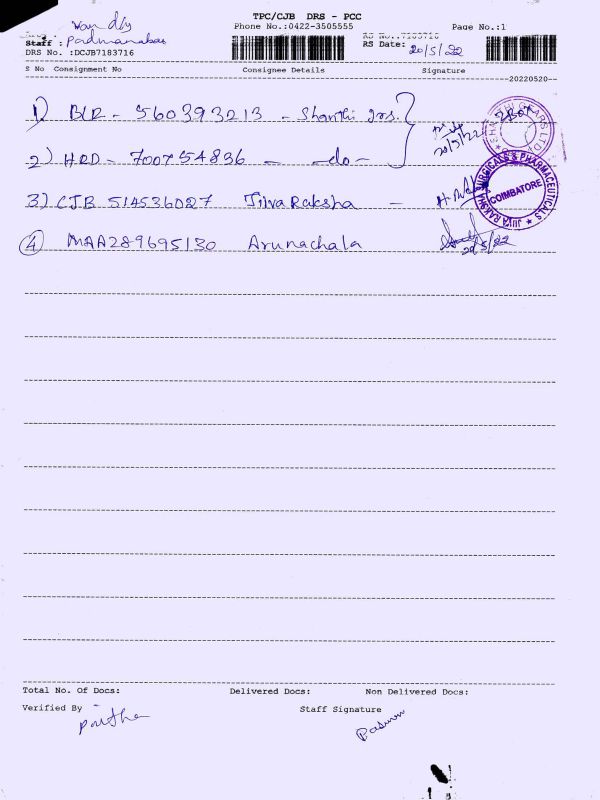 TPC/CJB DRS - PCC
Van dly
Phone No.:0422-3505555
Page No.:1
Staff : Padmanaban
RS Date: 20/5/22
DRS No. :DCJB7183716
S No Consignment No Consignee Details Signature
20220520
1) BLR - 560393213 - Shanthi grs.
20/5/22
2) HRD - 700754836 - - do -
3) CJB 514536027 Jilva Raksha -
COIMBATORE
4 MAA289695130 Arunachala
20/5/22
Total No. Of Docs: Delivered Docs: Non Delivered Docs:
Verified By Staff Signature